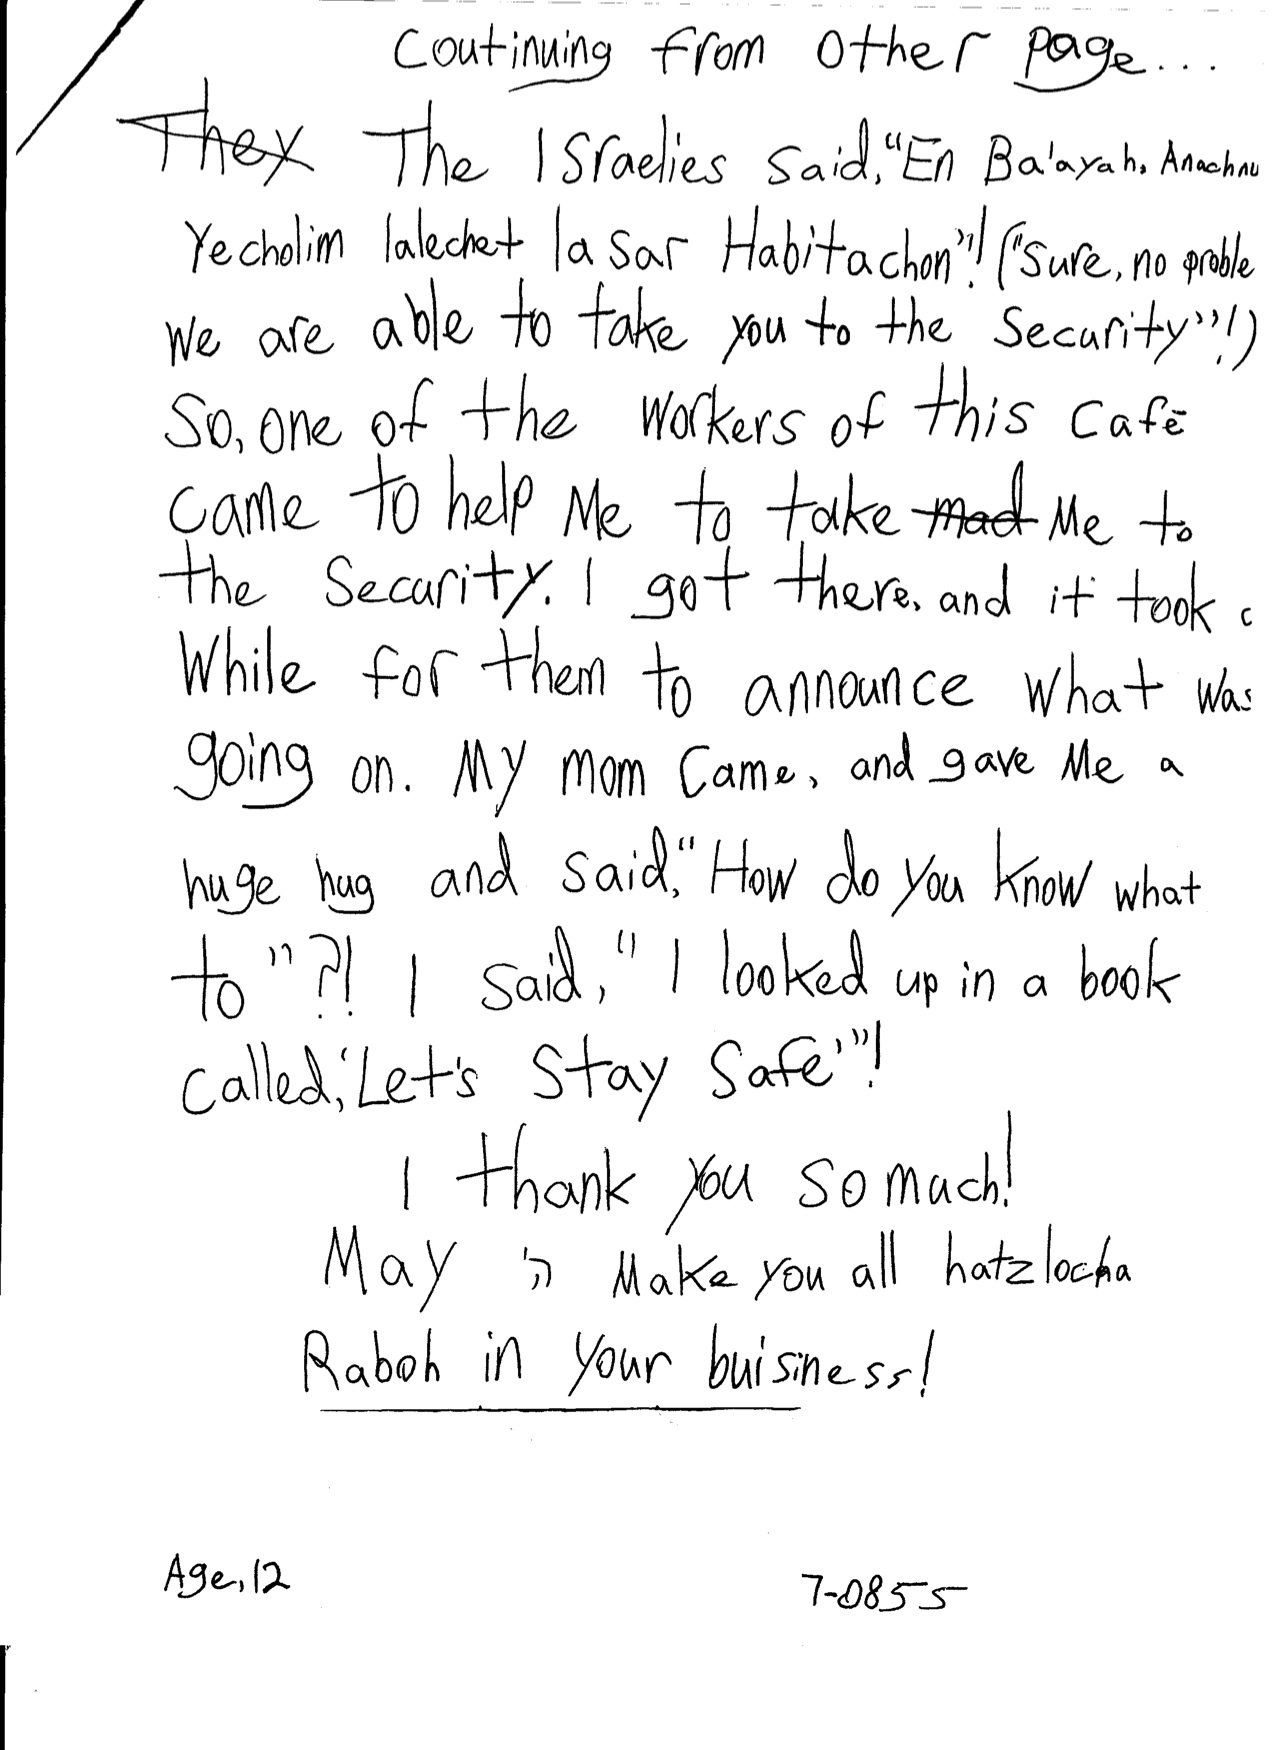 Coutinuing from other page...
They The Israelies said, "En Ba'ayah, Anachnu
Yecholim lalechet la sar Habitachon"! ("Sure, no proble
we are able to take you to the Security"!)
So, one of the workers of this Cafē
came to help Me to take mad Me to
the Security. I got there, and it took
While for them to announce what was
going on. My mom Came, and gave Me a
huge hug and said, "How do you know what
to"?! I said, "I looked up in a book
called, 'Let's Stay Safe'"!
I thank you so mach!
May ה' Make you all hatzlocha
Raboh in your buisiness!
Age, 12
7-0855